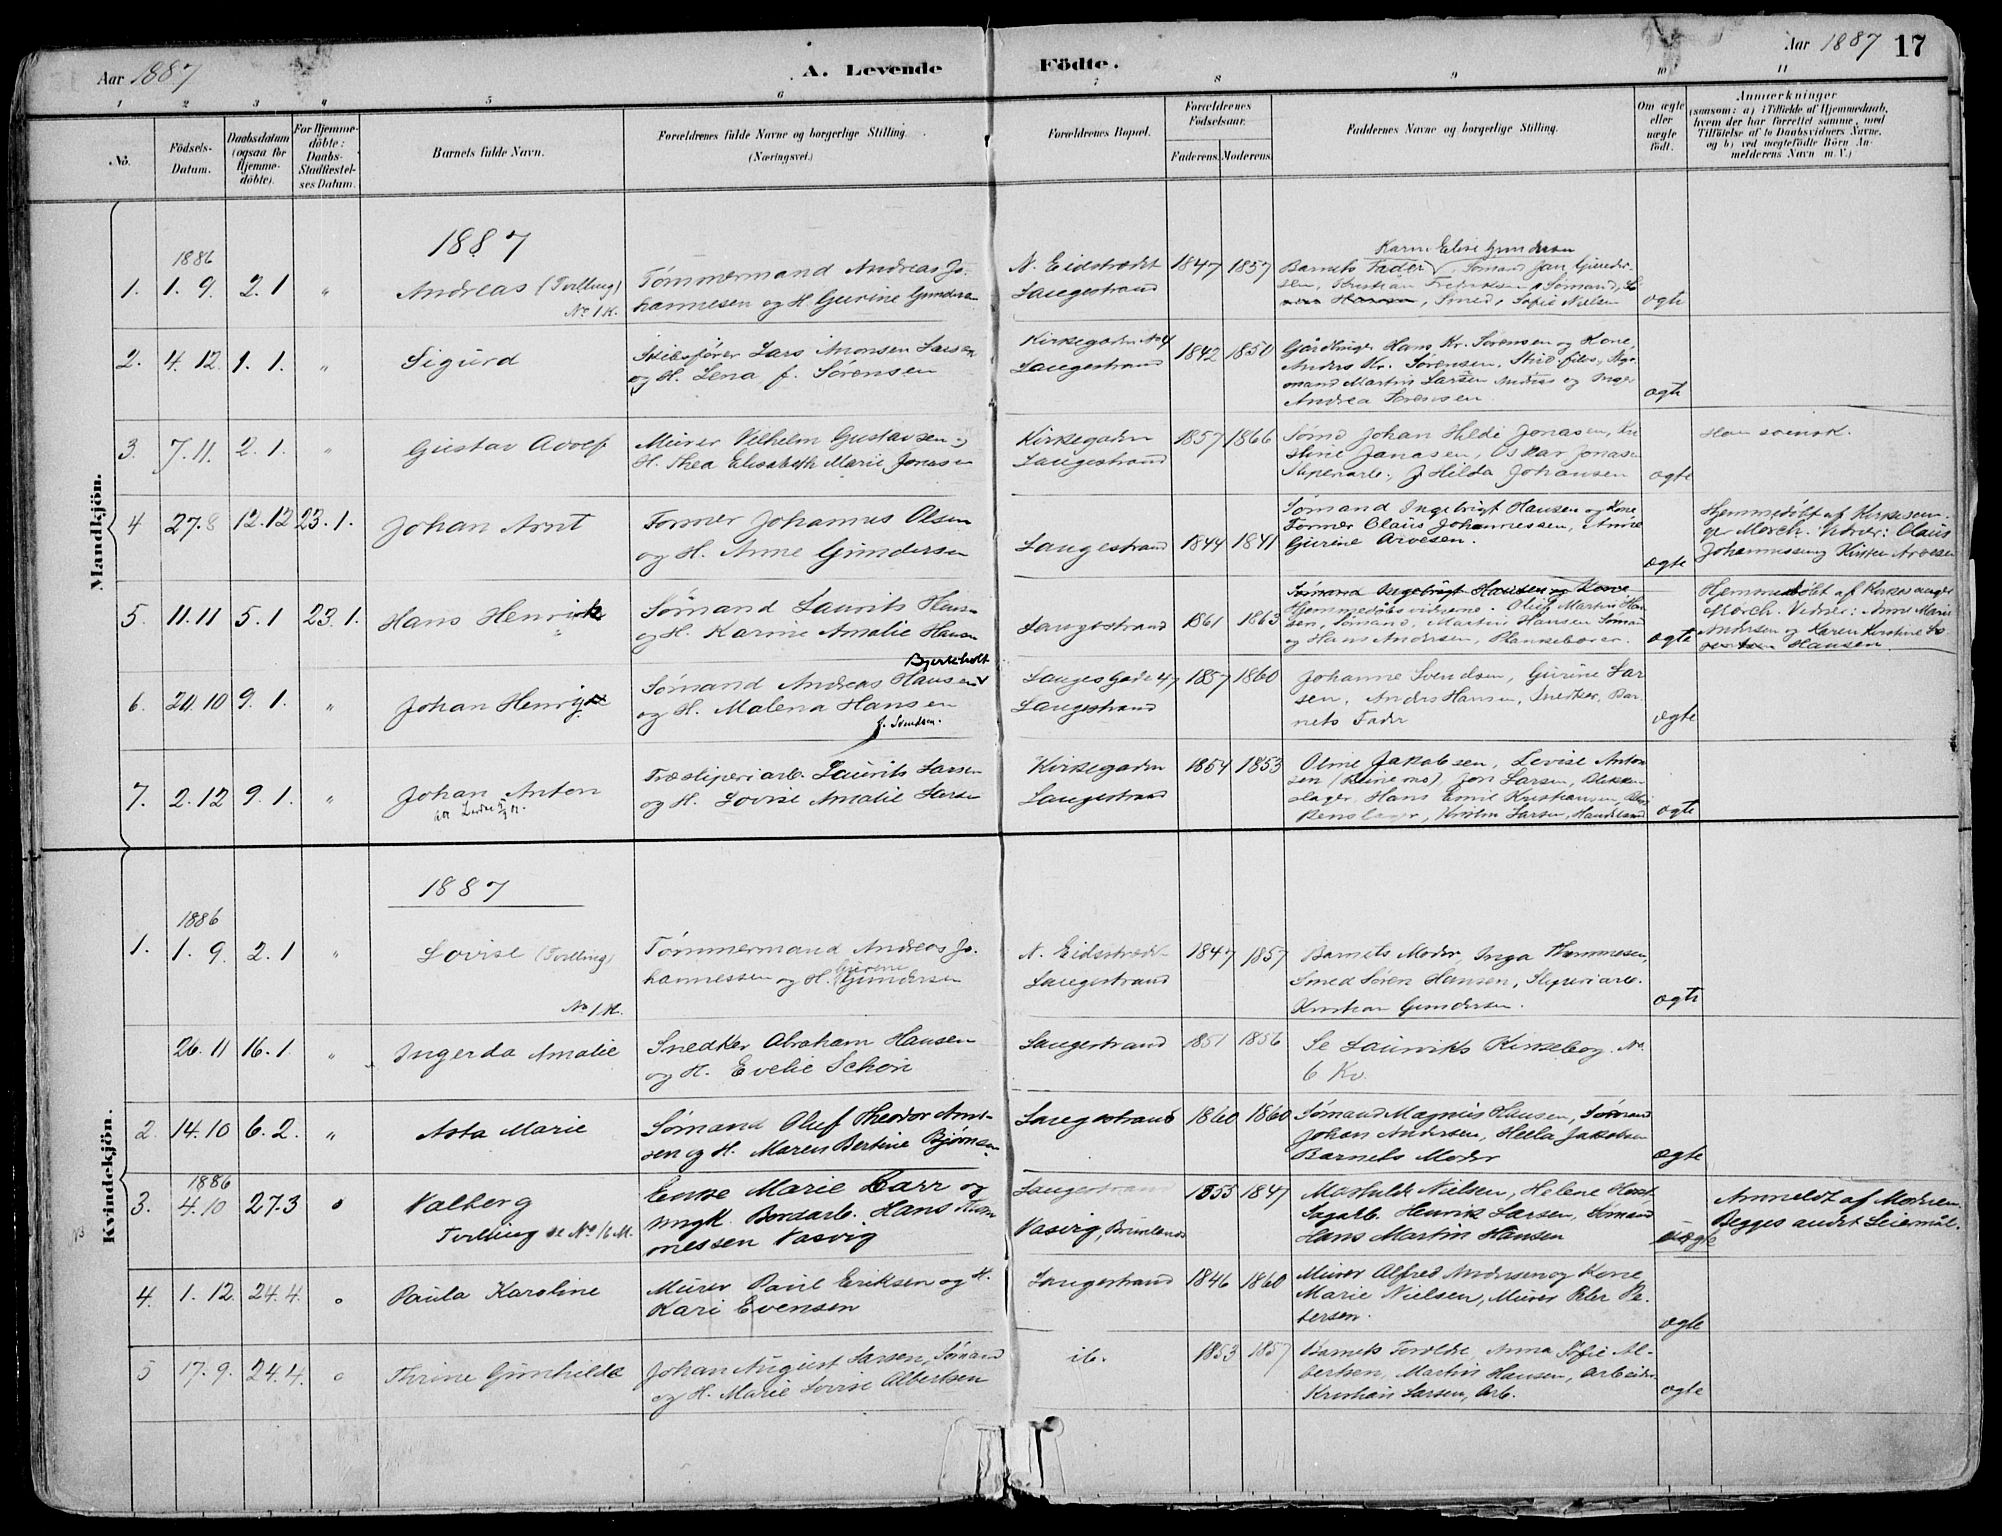 Aar 1887
A. Levende Födte.
Aar 1887 17
1 2 3 4 5 6 7 8 9 10 11
No.
Födsels-
Datum.
Daabsdatum
(ogsaa for
Hjemme-
döbte).
For Hjemme-
döbte:
Daabs-
Stadfæstel-
ses Datum.
Barnets fulde Navn.
Forældrenes fulde Navne og borgerlige Stilling.
(Næringsvei.)
Forældrenes Bopæl.
Forældrenes
Födselsaar.
Faderens. Moderens.
Faddernes Navne og borgerlige Stilling.
Om ægte
eller
uægte
født.
Anmærkninger
(saasom: a) i Tilfælde af Hjemmedaab,
hvem der har forrettet samme, med
Tilföielse af to Daabsvidners Navne,
og b) ved uægtefödte Börn An-
melderens Navn m. V.)
Mandkjön.
1887
1886
1. 1. 9. 2. 1 " Andreas (Tvilling)
No 1 K.
Tømmermand Andreas Jo-
hannesen og H. Gurine Gunders
N. Eidstrædet
Langestrand
1847 1857
Karen Elise Gundersen
Barnets Fader, Sømand Jan Gunder-
sen, Kristian Fredriksen, Sømand,
Smed, Sofie Nielsen
ægte
2. 4. 12. 1. 1. " Sigurd
Skibsfører Lars Monsen Larsen
og H. Lena f. Sørensen
Kirkegaden No 4
Langestrand
1842 1850
Gårdbruger Hans Kr. Sørensen og Kone,
Anders Kr. Sørensen, Stud. filos.,
mand Martin Larsen Andreas og Inger
Andrea Sørensen
ægte
3. 7. 11. 2. 1. " Gustav Adolf
Murer Vilhelm Gustavsen
H. Thea Elisabeth Marie Jonasen
Kirkegaden
Langestrand
1857 1866
Sømd Johan Hilde Jonasen, Kri
stine Janasen, Oskar Jonasen
Sliperiarb., J Hilda Johansen
ægte
Han svensk.
4 27. 8 12. 12 23. 1. Johan Arnt
Former Johannes Olsen
og H. Anne Gundersen
Langestrand
1844 1841
Sømand Ingebrigt Hansen og Kone
Former Claus Johannessen, Anne
Gurine Arvesen.
ægte
Hjemmedøbt af Kirkesan-
ger Morch. Vidner: Claus
Johannessen og Kirsten Arvesen
5. 11. 11 5. 1 23. 1. Hans Henrik
Sømand Laurits Hansen
og H. Karine Amalie Hansen
Langestrand
1861 1863
Sømand Ingebrigt Hansen og Kone
Hjemmedøbsvidnerne. Oluf Martin Han
sen, Sømand, Martin Hansen Sømand
og Hans Andersen, Plankebærer.
ægte
Hjemmedøbt af Kirkesanger
Morch. Vidner: Anne Marie
Andersen og Karen Kirstine
Hansen.
6. 20. 10 9. 1. " Johan Henrik
Bjerkeholt
Sømand Andreas Hansen
og H. Malena Hansen
f. Svendsen.
Langes Gade 47
Langestrand
1857 1860
Johanne Svendsen, Gurine Lar
sen, Anders Hansen, Snedker, Bar-
nets Fader
ægte
7. 2. 12 9. 1. " Johan Anton
Træsliperiarb. Laurits Larsen
og H. Lovise Amalie Larsen
Kirkegaden
Langestrand
1854 1853
Oline Jakobsen, Levise Anton
sen, Jon Larsen, Blikken
slager, Hans Emil Kristiansen,
Kirstin Larsen,
ægte
Kvindekjön.
1887
1886
1. 1. 9. 2. 1 " Lovise (Tvilling)
No 1 M.
Tømmermand Andreas Jo-
hannessen og H. Gurene Gundersen
N. Eidsstrædet
Langestrand
1847 1857
Barnets Moder, Inga Thommesen,
Smed Søren Hansen, Sliperiarb.
Kristian Gundersen.
ægte
26. 11 16. 1. " Ingerda Amalie
Snedker Abraham Hansen
og H. Evelie Schøn
Langestrand
1851 1856
Se Laurviks Kirkebog. No.
6 Kv.
2. 14. 10 6. 2. " Asta Marie
Sømand Oluf Theodor Arnt-
sen og H. Maren Bertine Bjørnsen
Langestrand
1860 1860
Sømand Magnus Hansen, Sømand
Johan Andersen, Hella Jakobsen
Barnets Moder
ægte
1886
3. 4. 10 27. 3 " Valberg
Tvilling se No 16 M.
Enke Marie Larr og
Ungk. Bordarb. Hans Thom
messen Vasvig
Langestrand
Vasvig, Brunlanes
1855 1847
Mathilde Nielsen, Helene
Sagarb. Henrik Larsen, Sømand
Hans Martin Hansen
uægte
Anmeldt af Moderen.
Begges andet Leiemål.
4. 1. 12. 24. 4. " Paula Karoline
Murer Paul Eriksen og H.
Kari Evensen
Langestrand
1846 1860
Murer Alfred Andersen og Kone
Marie Nielsen, Murer Peter Pe-
tersen.
ægte
5 17. 9. 24. 4. " Thrine Gunhilda
Johan August Larsen, Sømand
og H. Marie Lovise Albertsen
ib.
1853 1857
Barnets Forældre, Anna Sofie Al-
bertsen, Martin Hansen, Arbeider
Kristian Larsen, Arb.
ægte